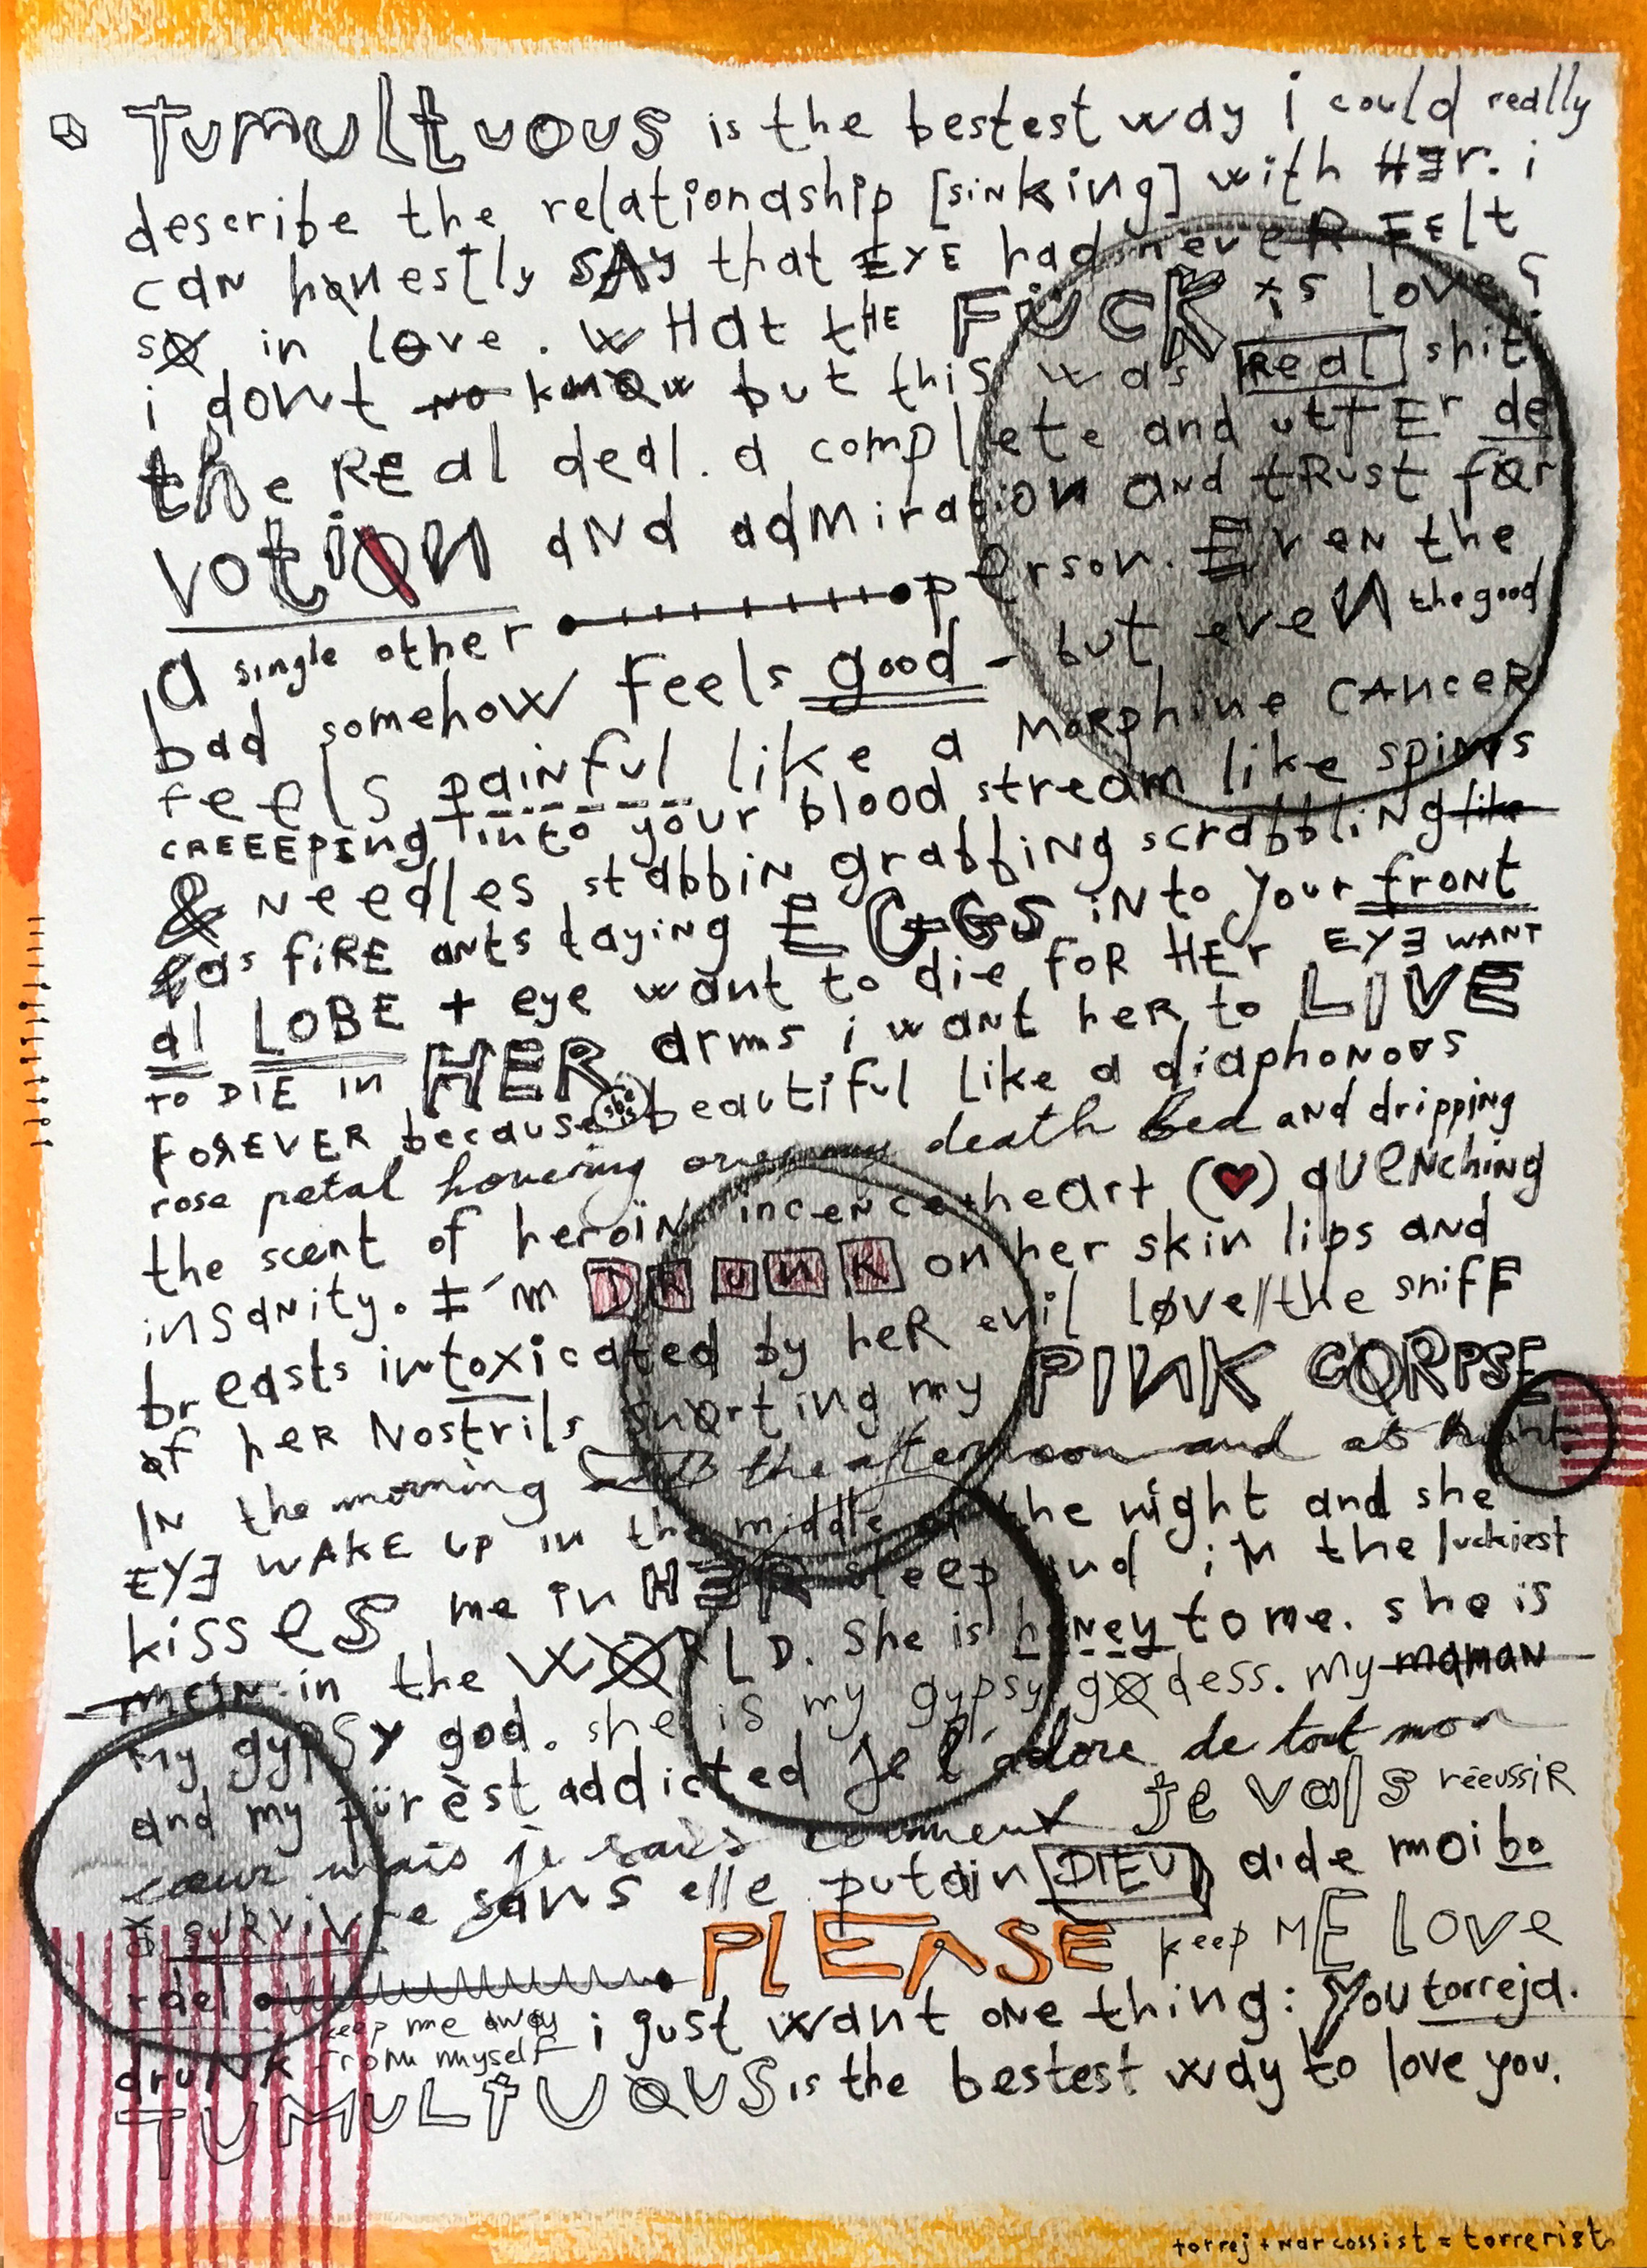 TUMULTUOUS is the bestest way i could really
describe the relationship [sinking] with HEr. i
can honestly SAy that EYE had never FElt
sø in love. wHat tHE FUCK is love?
i dont no know but this was Real shit
the REal deal. a complete and uttEr de
votiøn and admiration and tRust før
a single other person. Even the
bad somehow feels good - but even the good
feels painful like a MoRphine CANceR
CREEEPing into your blood stream like spinns
& Needles stabbin grabbing scrabbling like
as fiRE ants laying EGGS into your front
al LOBE + eye want to die foR HEr EYE WANT
TO DIE IN HER arms i want heR to LIVE
FOREVER because she is beautiful like a diaphonous
rose petal hovering over my death bed and dripping
the scent of heroin incence heart (♥) quenching
insanity. I'm DRUNK on her skin lips and
breasts intoxicated by heR evil løve//the sniff
of heR Nostrils snorting my PINK CORPSE
IN the morning the afternoon and at night.
EYE WAKE UP in the middle of the night and she
kissES me in HER sleep and i'm the luckiest
man in the WØRLD. She is honey to me. she is
my gypsy god. she is my gypsy gødess. my maman
and my pürèst addicted je l'adore de tout mon
cœur mais je sais comment je vais réeussir
à survivre sans elle putain DIEU aide moi bo
rdel PLEASE keep ME love
drunk keep me away from myself i just want one thing: You torreja.
TUMULTUOUS is the bestest way to love you.
torrej + narcossist = torrerist